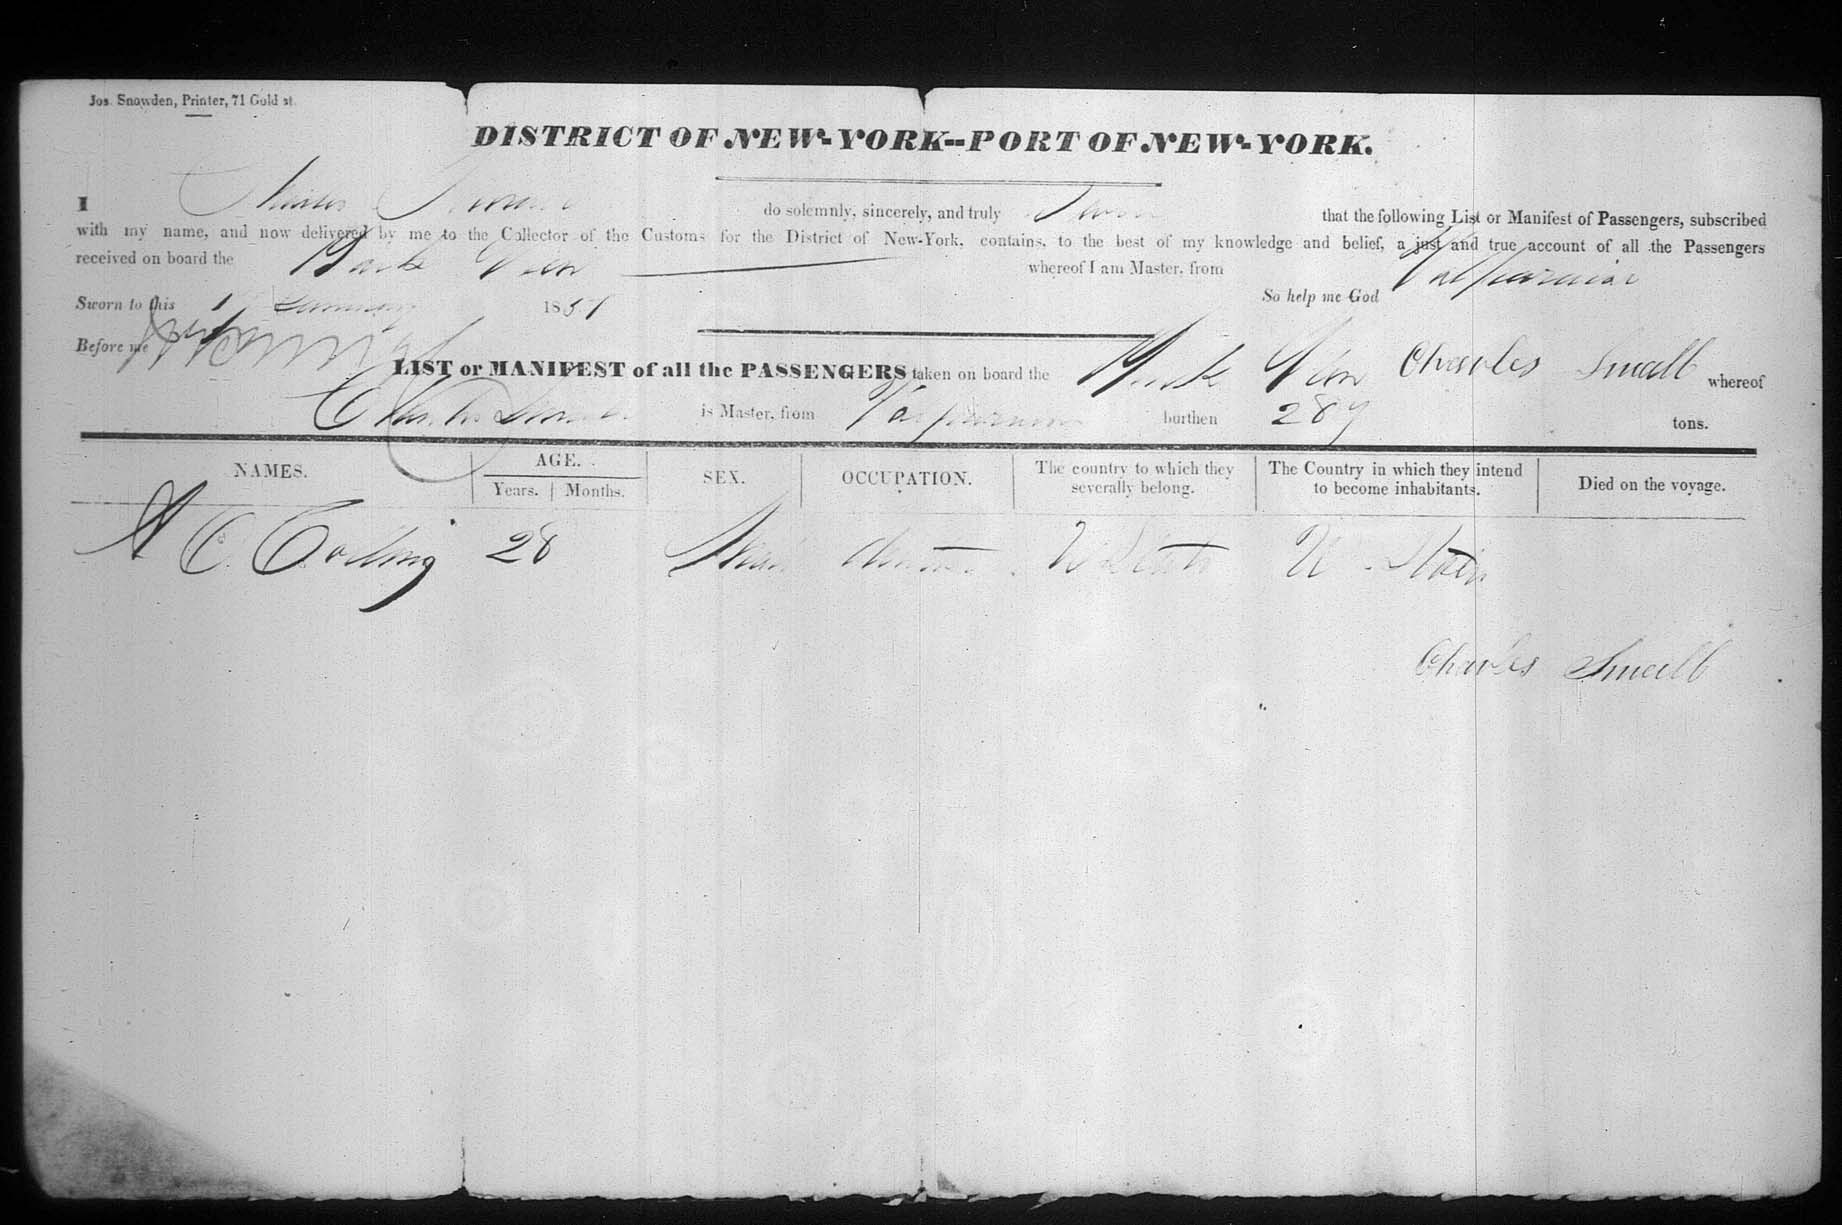 Jos. Snowden, Printer, 71 Gold st.
DISTRICT OF NEW-YORK--PORT OF NEW-YORK.
I Charles do solemnly, sincerely, and truly Swear that the following List or Manifest of Passengers, subscribed
with my name, and now delivered by me to the Collector of the Customs for the District of New-York, contains, to the best of my knowledge and belief, a just and true account of all the Passengers
received on board the Bark whereof I am Master, from Valparaiso
Sworn to this January 1851 So help me God
Before me
LIST or MANIFEST of all the PASSENGERS taken on board the Bark Charles Small whereof
Charles is Master, from Valparaiso burthen 289 tons.
NAMES. AGE. SEX. OCCUPATION. The country to which they severally belong. The Country in which they intend to become inhabitants. Died on the voyage.
Years. Months.
A C 28 Male U States U States
Charles Small